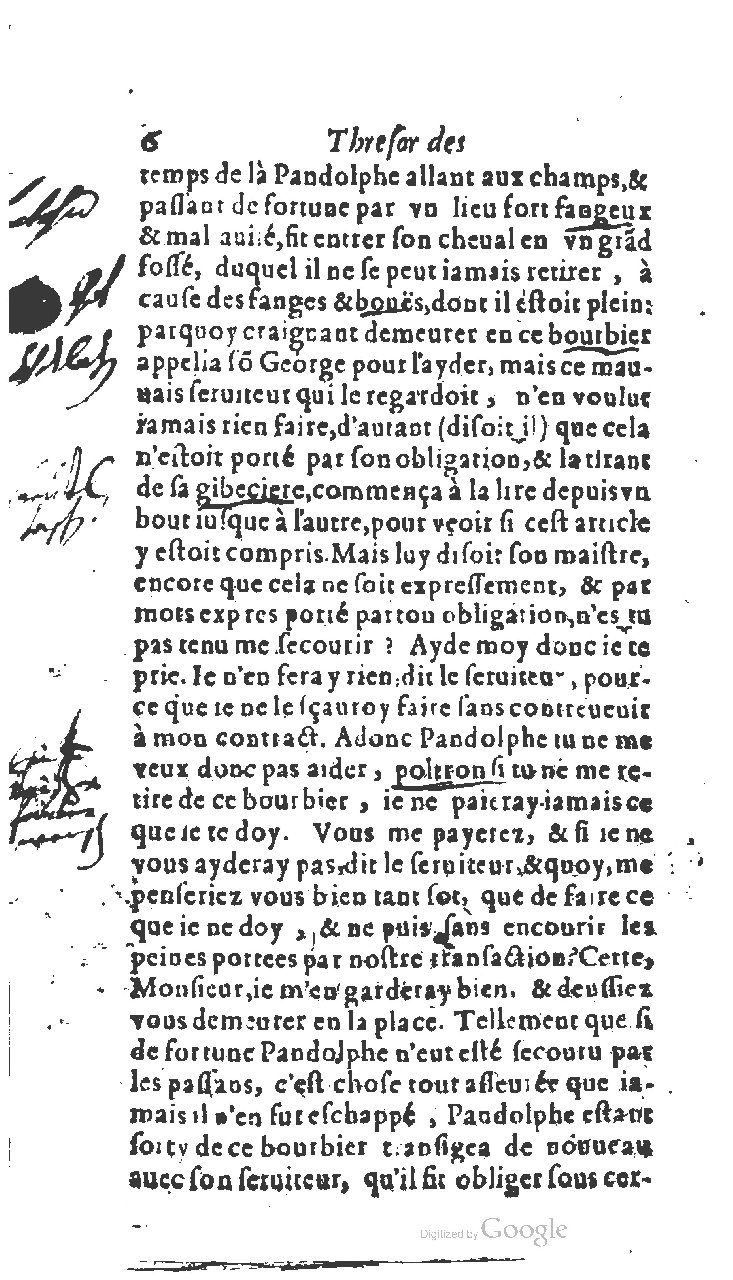 6 Thresor des
temps de là Pandolphe allant aux champs,&
passant de fortune par vn lieu fort fangeux
& mal auisé,fit entrer son cheual en vn grãd
fossé, duquel il ne se peut iamais retirer , à
cause des fanges & bouës,dont il estoit plein:
parquoy craignant demeurer en ce bourbier
appella sõ George pour l'ayder, mais ce mau-
uais seruiteur qui le regardoit , n'en voulut
iamais rien faire,d'autant (disoit il) que cela
n'estoit porté par son obligation,& la tirant
de sa gibeciere,commença à la lire depuis vn
bout iusque à l'autre,pour veoir si cest article
y estoit compris.Mais luy disoit son maistre,
encore que cela ne soit expressement, & par
mots expres porté par tou obligation,n'es tu
pas tenu me secourir ? Ayde moy donc ie te
prie. Ie n'en feray rien,dit le seruiteur, pour-
ce que ie ne le sçauroy faire sans contreuenir
à mon contract. Adonc Pandolphe tu ne me
veux donc pas aider , poltron si tu ne me re-
tire de ce bourbier , ie ne paieray iamais ce
que ie te doy. Vous me payerez, & si ie ne
vous ayderay pas,dit le seruiteur,& quoy,me
penseriez vous bien tant sot, que de faire ce
que ie ne doy , & ne puis sans encourir les
peines portees par nostre transaction?Certe,
Monsieur,ie m'en garderay bien. & deussiez
vous demeurer en la place. Tellement que si
de fortune Pandolphe n'eut esté secouru par
les passans, c'est chose tout asseurée que ia-
mais il n'en fut eschappé , Pandolphe estant
sorty de ce bourbier transigea de nouueau
auec son seruiteur, qu'il fit obliger sous cer-
Digitized by Google